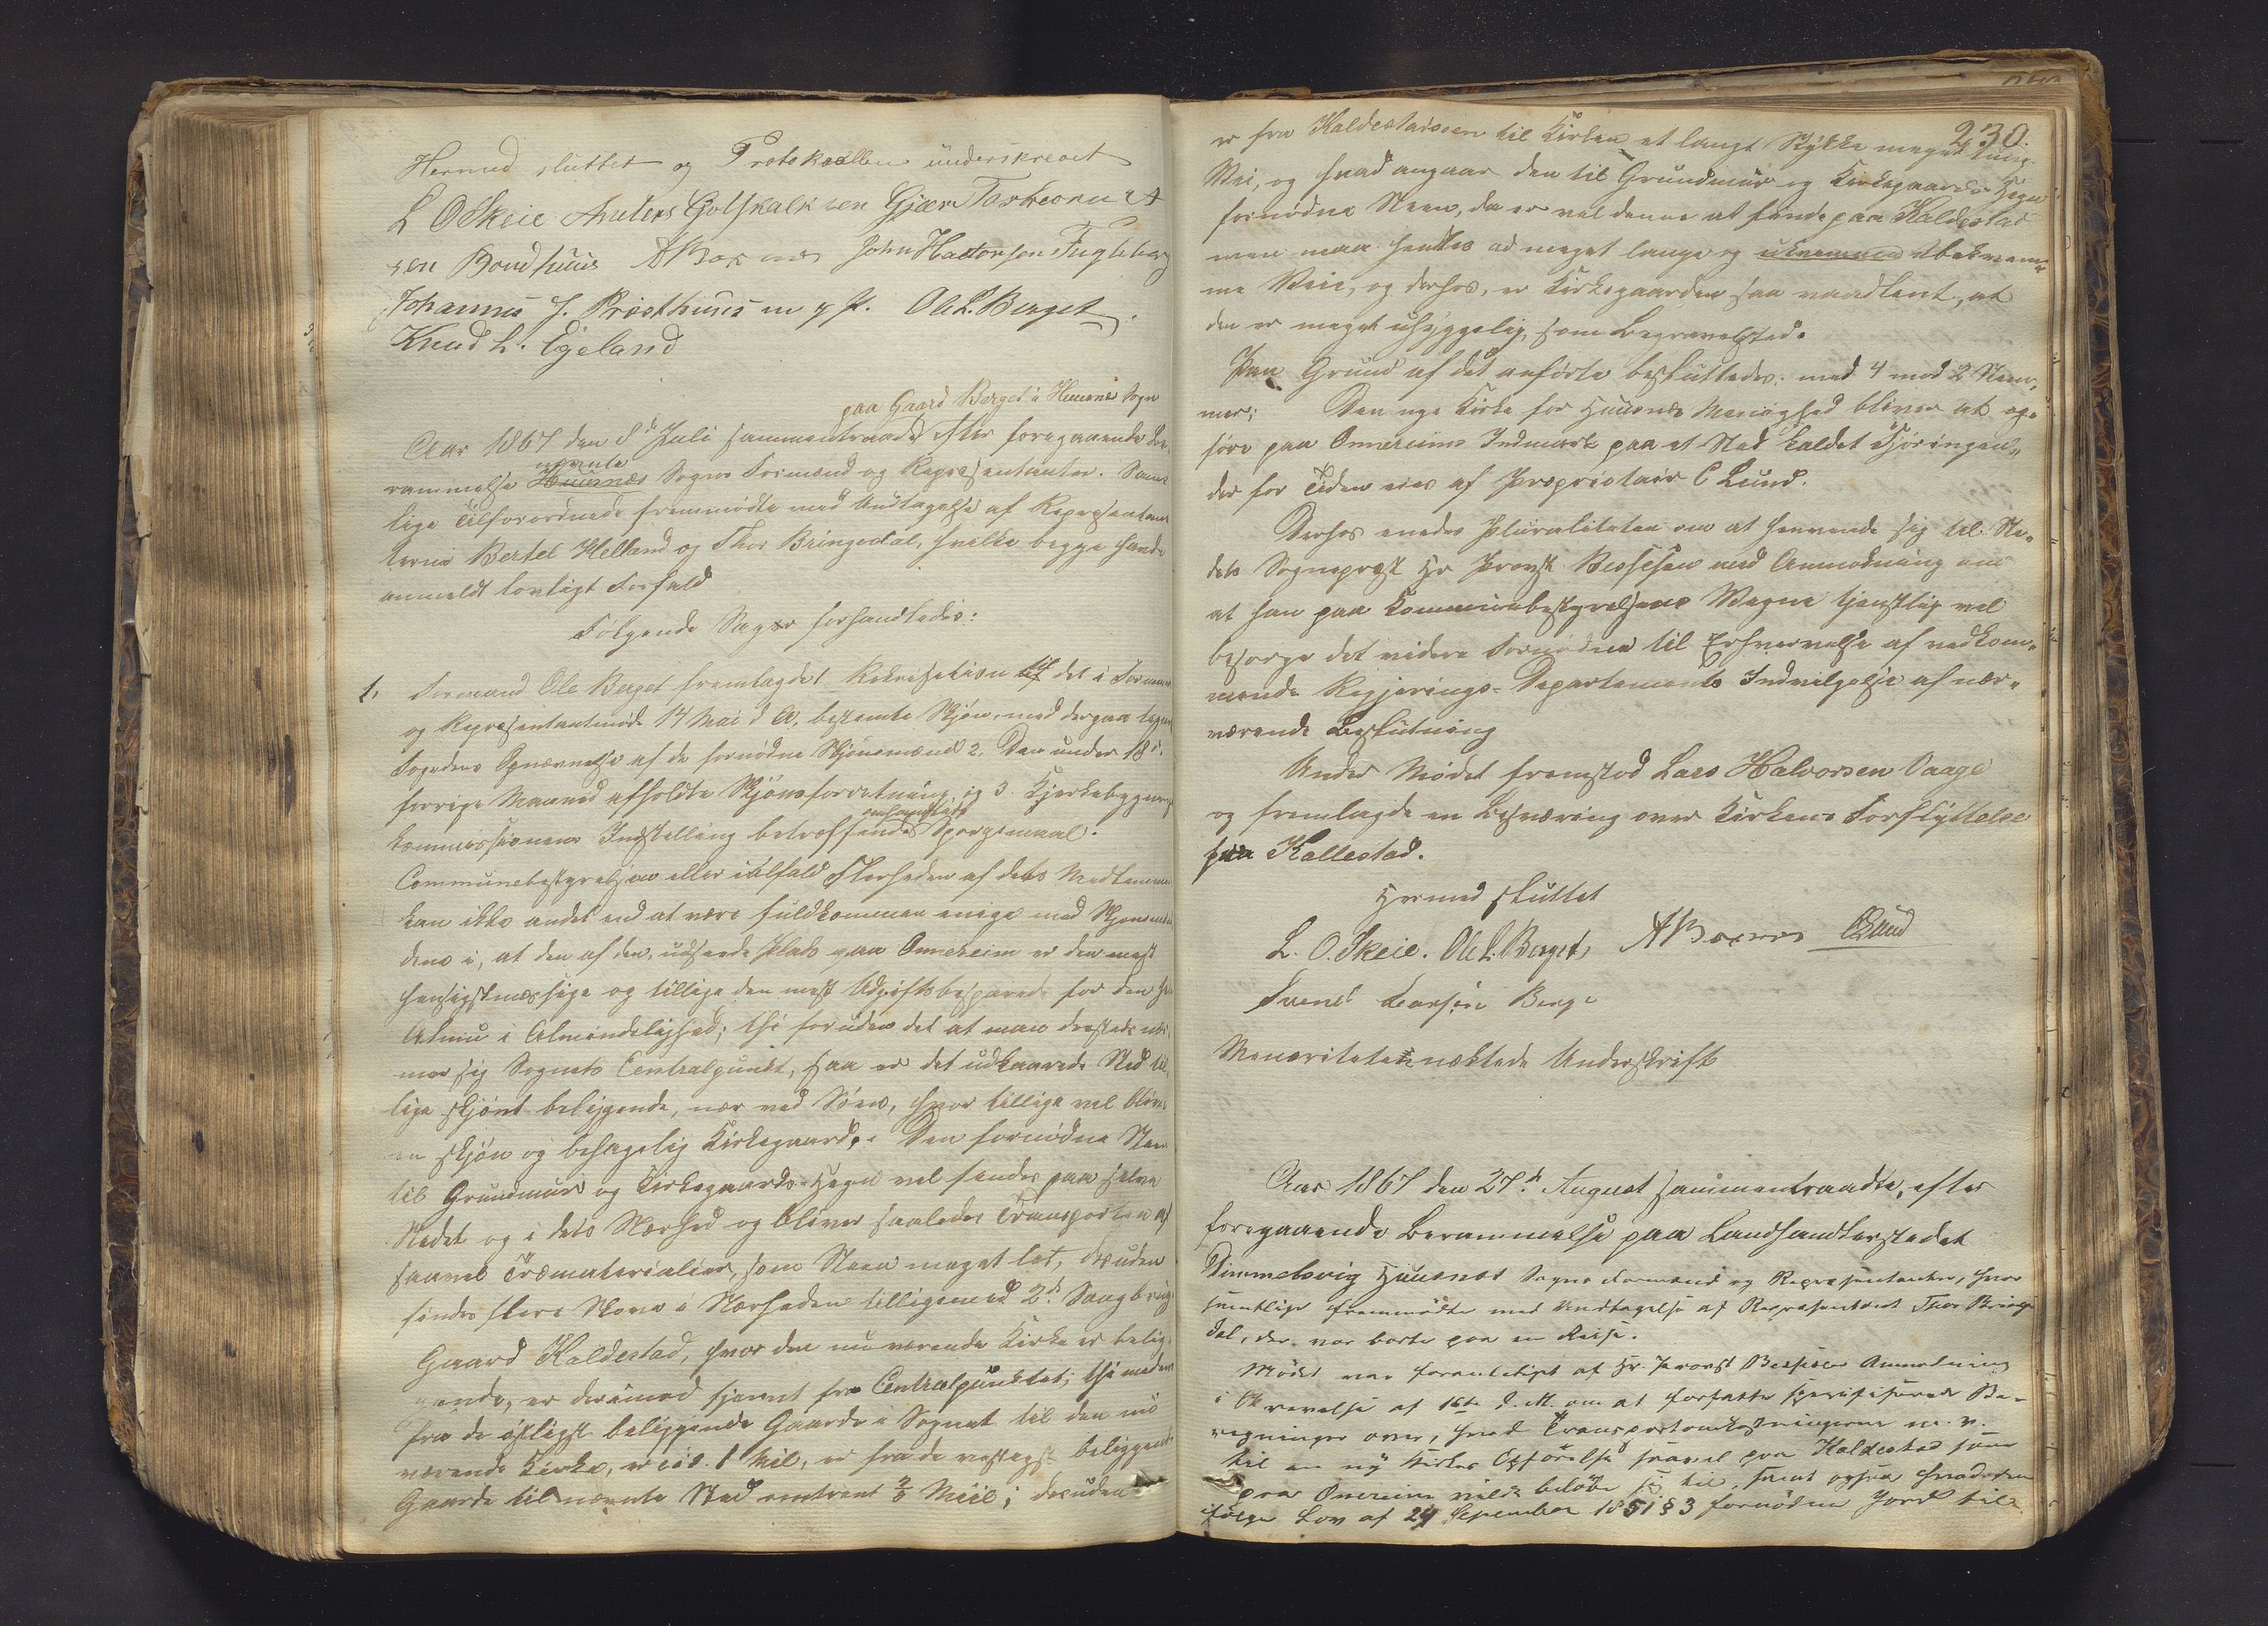 Hermed sluttet og Protokollen underskrevet
L O Skeie Anders Gotskalksen Gjærn Torbeorn A
sen Bondhuus A Boxnæs John Hactorsen Fugleberg
Johannes J. Prosthuus m. p. P. Ole L. Berget.
Knud L. Egeland
paa Gaard Berget i Huusnes Sogn
Aar 1867 den 8de Juli sammentraadte efter foregaaende Be-
nævnte
rammelse Huusnæs Sogns Formænd og Repræsentanter. Samt
lige Tilforordnede fremmødte med Undtagelse af Repræsentan
terne Bertel Helland og Thor Bringedal, hvilke begge havde
anmeldt lovligt Forfald
Følgende Sager forhandledes:
1. Formand Ole Berget fremlagde 1 Rekvisition til det i Formands
og Repræsentantmøde 14 Mai d A. bestemte Skjøn, med derpaa tegnet
Fogdens Opnævnelse af de fornødne Skjønsmænd 2. Den under 18de
forrige Maaned afholdte Skjønsforretning, og 3. Kjerkebygnings
omhandlede
kommissionens Indstilling betræffende Spørgsmaal.
Communebestyrelsen eller ialfald Fleerheden af dets Medlemmer
kan ikke andet end at være fuldkommen enige med Skjønsmæn
dene i, at den af dem udseede Plads paa Onnereim er den mest
hensigtsmæssige og tillige den mest Udgiftsbesparede for den hele
Almue i Almindelighed; thi foruden det at man dersteds nær
mer sig Sognets Centralpunkt, saa er det udkaarede Sted til
lige skjønt beliggende, nær ved Søen, hvor tillige vel bliver
en skjøn og behagelig Kirkegaard. Den fornødne Steen
til Grundmur og Kirkegaards-Hegn vel findes paa selve
Stedet og i dets Nærhed og bliver saaledes Transporten af
saavel Træmaterialier, som Steen meget let, desuden
findes flere Skove i Nærheden tilligemed 2de Saugbrug.
Gaard Kaldestad, hvor den nuværende Kirke er belig-
gende, er derimod fjernet fra Centralpunktet; thi medens
fra de østligst beliggende Gaarde i Sognet til den nu
værende Kirke, er 1 Mil, er fra de vestligst beliggende
Gaarde til nævnte Sted omtrent Miil; desuden
230.
er fra Kaldestadsøen til Kirken et langt Stykke meget tung
Vei, og hvad angaar den til Grundmur og Kirkegaards-Hegn
fornødne Steen, da er vel denne at finde paa Kaldestad
men maa hentes ad meget lange og ubekvem-
me Veie, og derhos er Kirkegaarden saa vandlent, at
den er meget uhyggelig som Begravelsted.
Paa Grund af det anførte besluttedes: med 4 mod 2 Stem-
mer; Den nye Kirke for Huusnæs Menighed bliver at op-
føre paa Onnereims Indmark paa et Sted kaldet Kjøringen,
der for Tiden eies af Proprietair C Lund.
Derhos enedes Pluraliteten om at henvende sig til Ste-
dets Sognepræst Hr Provst Bessesen med Anmodning om
at han paa Kommunebestyrelsens Vegne tjenstlig vel
besørge det videre Fornødne til Erhvervelse af vedkom-
mende Regjerings-Departements Indvilgelse af nær-
værende Beslutning
Under Mødet fremstod Lars Halvorsen Vaage
og fremlagde en Besværing over Kirkens Forflyttelse
fra Kallestad.
Hermed sluttet
L. O. Skeie. Ole L. Berget, A Boxnæs CLund
Svend Larsen Berge
Menoriteten nektede Underskrift
Aar 1867 den 27de August sammentraadte, efter
foregaaende Berammelse paa Landhandlerstedet
Dimmelsvig Huusnæs Sogns Formænd og Repræsentanter, hvor
samtlige fremmødte med Undtagelse af Repræsentant Thor Bringe
dal, der var borte paa en Reise.
Mødet var foranlediget af Hr. Provst Bessesens Anmodning
i Skrivelse af 16de d. M. om at forfatte specificerede Be-
regninger over, hvad Transportomkostningerne m. v.
til en ny Kirkes Opførelse saavel paa Kaldestad som
paa Onereim vilde beløbe sig til, samt ogsaa hvad den
ifølge Lov af 24 September 1851 § 3 fornødne Jord til